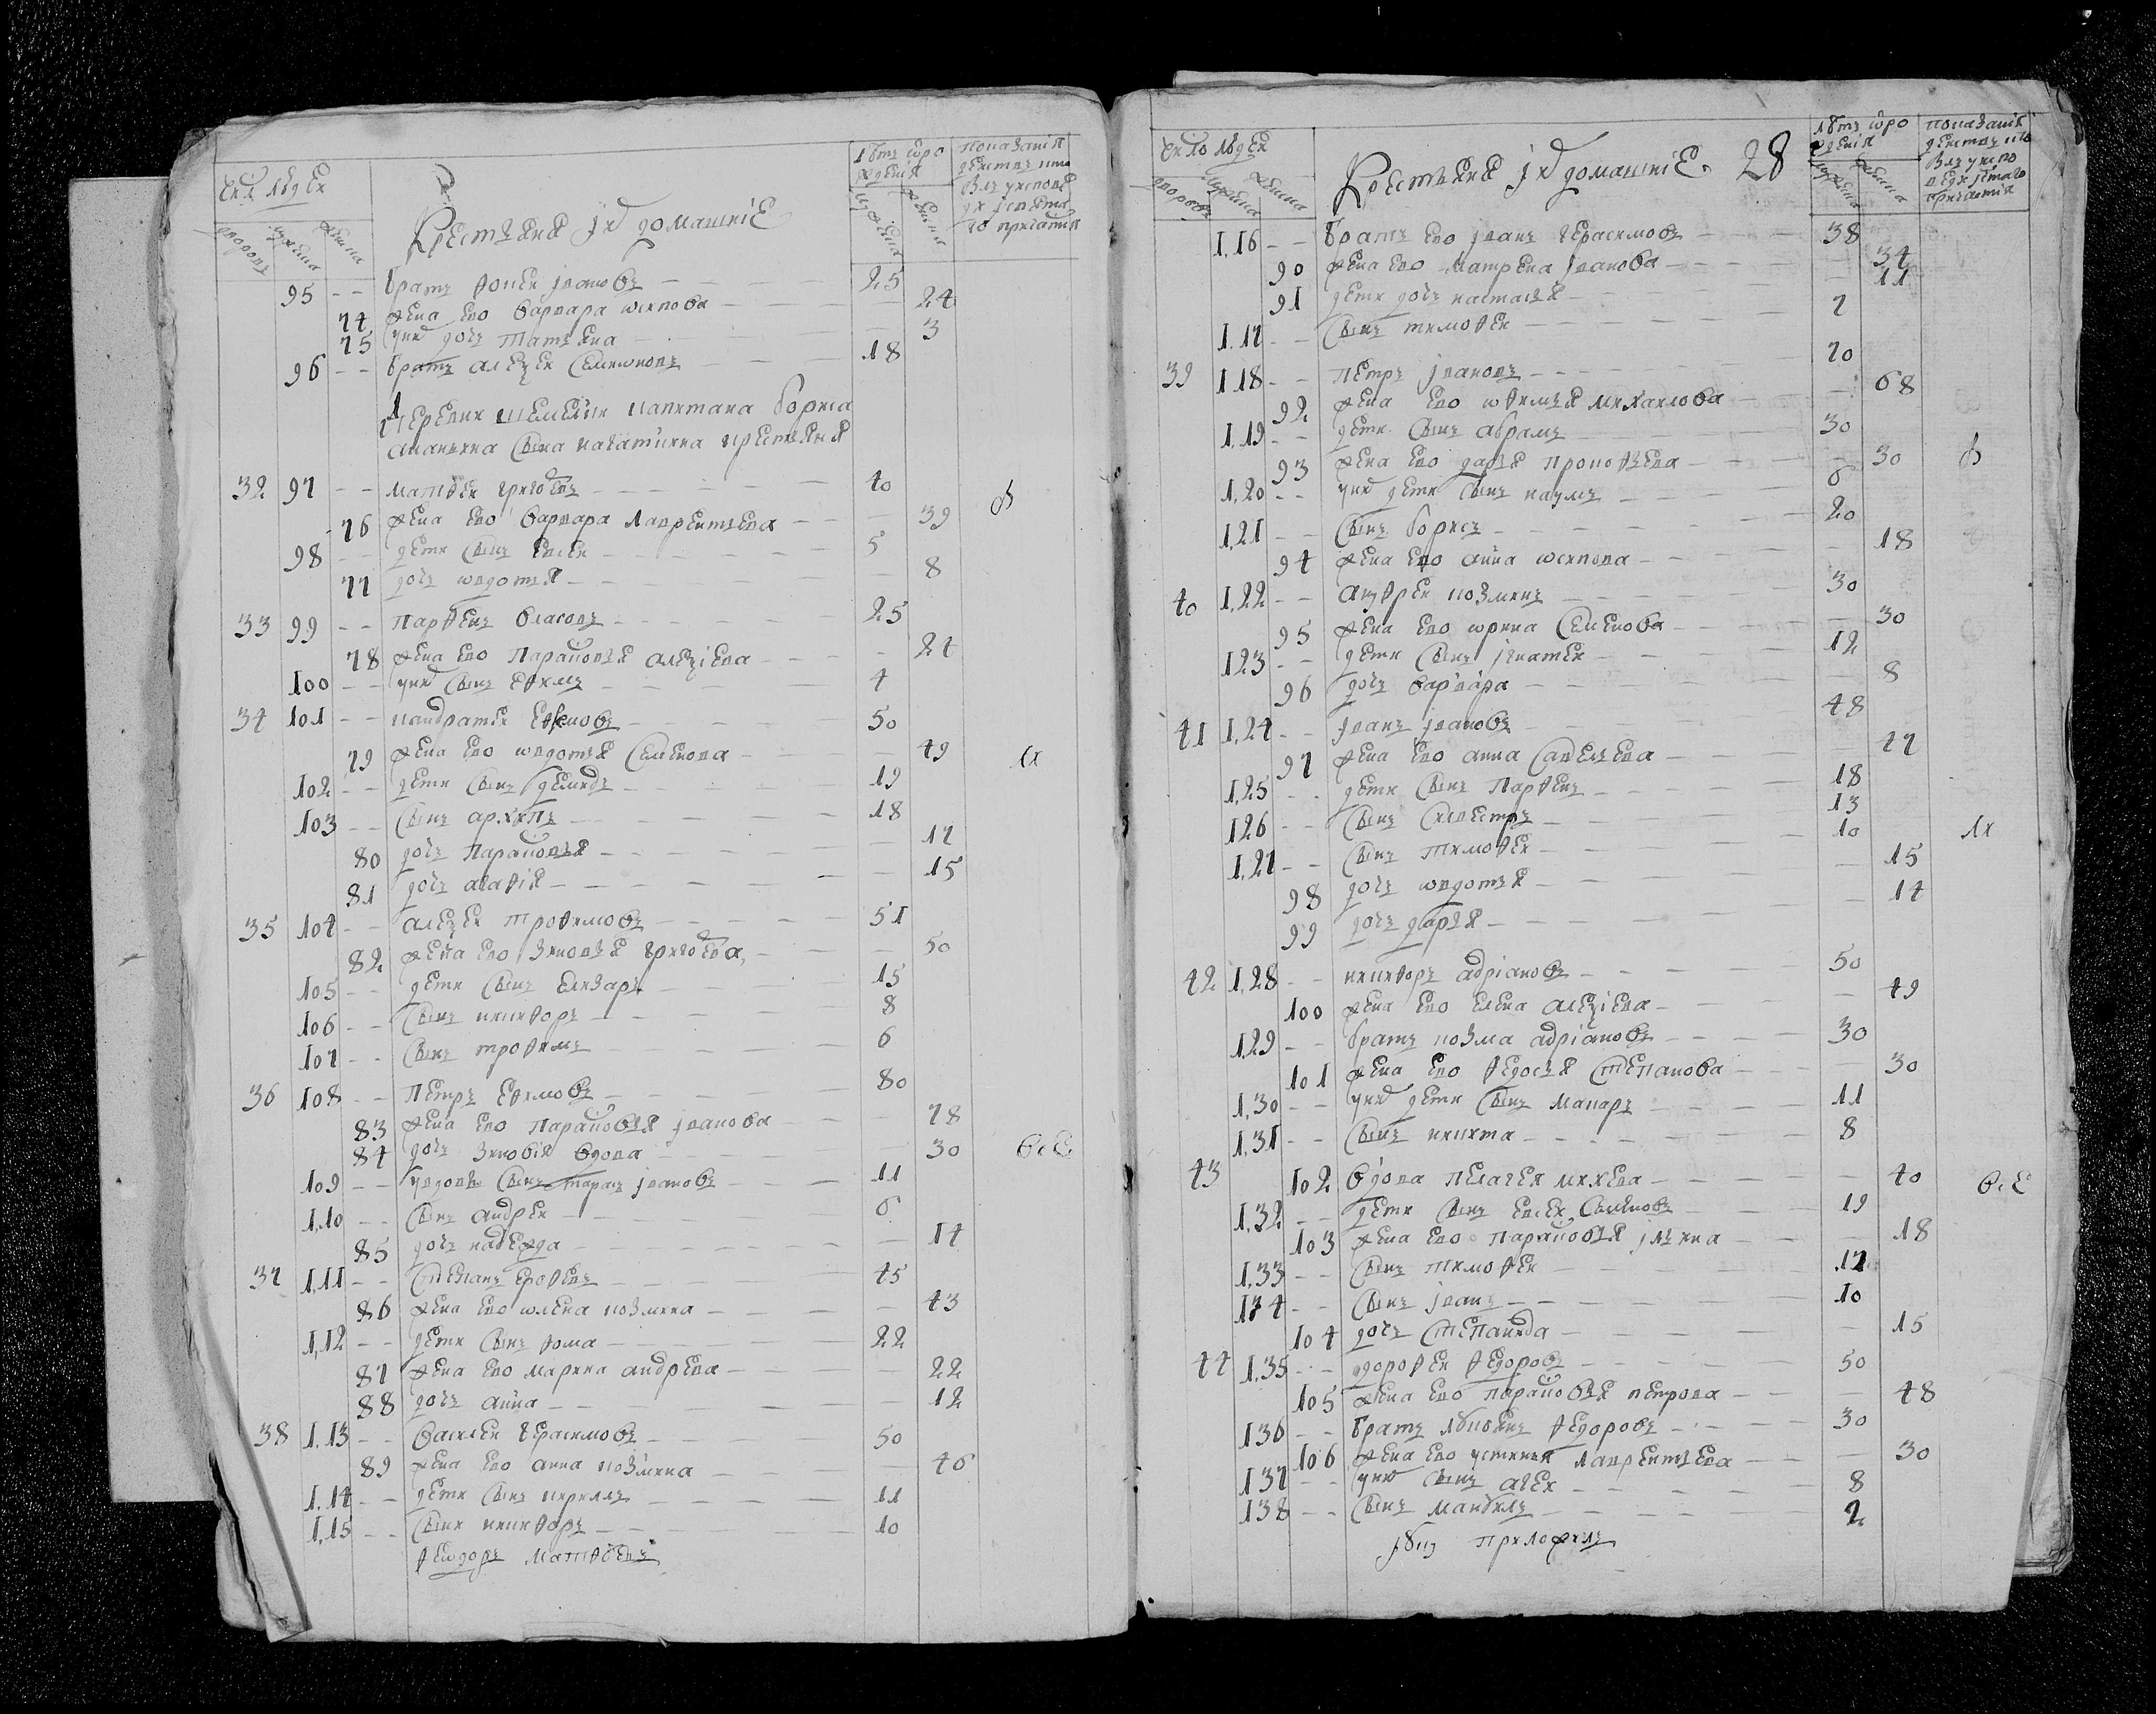 число людей
дворовъ
мужеска
женска
Крестьяня ихъ домашніе
лѣтъ отро
жденія
мужеска
женска
показанія
95 - - братъ фокей ивановъ 25
74 жена ево варвара 24
75 ихъ дочь татьяна 3
96 - - братъ алеѯей симионовъ 18
Деревни капитана бориса
ананьина сына крестьяня
32 97 - - матфей григорьевъ 40
76 жена ево варвара лаврентьева 39
98 - - дети сынъ евсей 5
77 дочь овдотья 8
33 99 - - парфенъ власовъ 25
78 жена ево парасковья алеѯіева 24
100 - - ихъ сынъ ефимъ 4
34 101 - - кандратей 50
79 жена ево овдотья семенова 49
102 - - дети сынъ демидъ 19
103 - - сынъ архипъ 18
80 дочь парасковья 17
81 дочь агафія 15
35 104 - - алеѯей трофимовъ 51
82 жена ево зиновья григорьева 50
105 - - дети сынъ елизаръ 15
106 - - сынъ никифоръ 8
107 - - сынъ трофимъ 6
36 108 - - петръ ефимовъ 80
83 жена ево парасковья иванова 78
84 дочь зиновія вдова 30 все
109 - - у вдовы сынъ тарасъ ивановъ 11
110 - - сынъ андрей 6
85 дочь надежда 14
37 111 - - степанъ ерофеевъ 45
86 жена ево олена козмина 43
112 - - дети сынъ фома 22
87 жена ево марина андреева 22
88 дочь анна 12
38 113 - - василей герасимовъ 50
89 жена ево анна козмина 46
114 - - дети сынъ кирилъ 11
115 - - сынъ никифоръ 10
феодоръ матфѣевъ
число людей
дворовъ
мужеска
женска
Крестьяня ихъ домашніе 28
лѣтъ отро
жденія
мужеска
женска
показанія
116 - - братъ ево иванъ герасимовъ 38
90 жена ево матрена иванова 34
91 дети дочь настасья 11
117 - - сынъ тимофей 7
39 118 - - петръ ивановъ 70
92 жена ево михаилова 68
119 - - дети сынъ абрамъ 30
93 жена ево дарья прокофьева 30
120 - - ихъ дети сынъ наумъ 6
121 - - сынъ борисъ 20
94 жена ево анна 18
40 122 - - андрей козминъ 30
95 жена ево орина семенова 30
123 - - дети сынъ игнатей 12
96 дочь варвара 8
41 124 - - иванъ ивановъ 48
97 жена ево анна савельева 47
125 - - дети сынъ парфенъ 18
126 - - сынъ силвестръ 13
127 - - сынъ тимофей 10
98 дочь овдотья 15
99 дочь дарья 14
42 128 - - никифоръ адріановъ 50
100 жена ево елена алеѯіева 49
129 - - братъ козма адріановъ 30
101 жена ево федосья степанова 30
130 - - ихъ дети сынъ макаръ 11
131 - - сынъ никита 8
43 102 вдова пелагея михеева 40 все
132 - - дети сынъ евсей семеновъ 19
103 жена ево парасковья ильина 18
133 - - сынъ тимофей 12
134 - - сынъ иванъ 10
104 дочь степанида 15
44 135 - - дорофей федоровъ 50
105 жена ево парасковья петрова 48
136 - - братъ федоровъ 30
106 жена ево устинья лаврентьева 30
137 - - ихъ сынъ агей 8
138 - - сынъ мануилъ 2
приложилъ